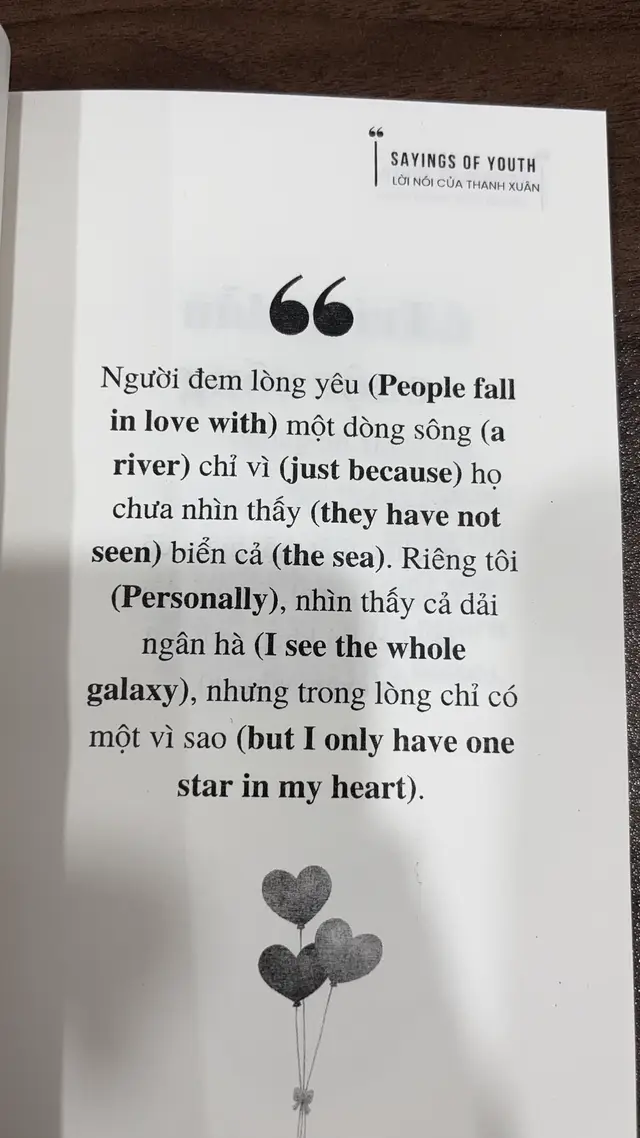 SAYINGS OF YOUTH
LỜI NÓI CỦA THANH XUÂN
Người đem lòng yêu (People fall
in love with) một dòng sông (a
river) chỉ vì (just because) họ
chưa nhìn thấy (they have not
seen) biển cả (the sea). Riêng tôi
(Personally), nhìn thấy cả dải
ngân hà (I see the whole
galaxy), nhưng trong lòng chỉ có
một vì sao (but I only have one
star in my heart).